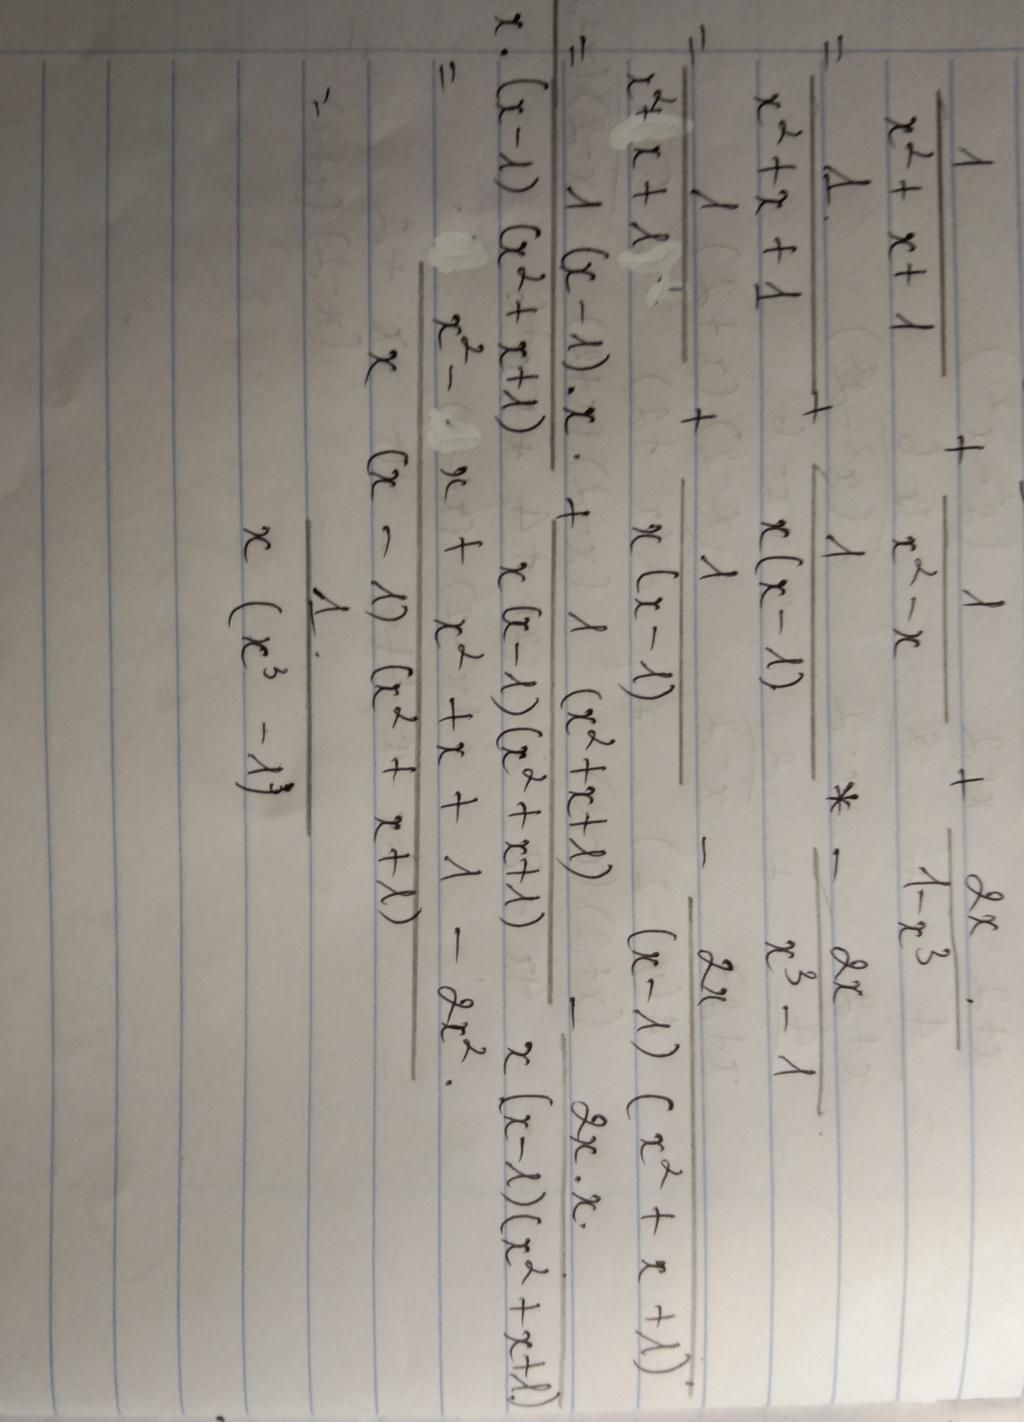 1/(x² + x + 1) + 1/(x² - x) + 2x/(1 - x³).
= 1./(x² + x + 1) + 1/(x(x - 1)) * - 2x/(x³ - 1)
= 1/(x² + x + 1) + 1/(x(x - 1)) - 2x/((x - 1)(x² + x + 1)).
= 1(x - 1).x./(x.(x - 1)(x² + x + 1)) + 1(x² + x + 1)/(x(x - 1)(x² + x + 1)) - 2x.x./(x(x - 1)(x² + x + 1))
= (x² - x + x² + x + 1 - 2x².)/(x(x - 1)(x² + x + 1))
= 1./(x(x³ - 1³))